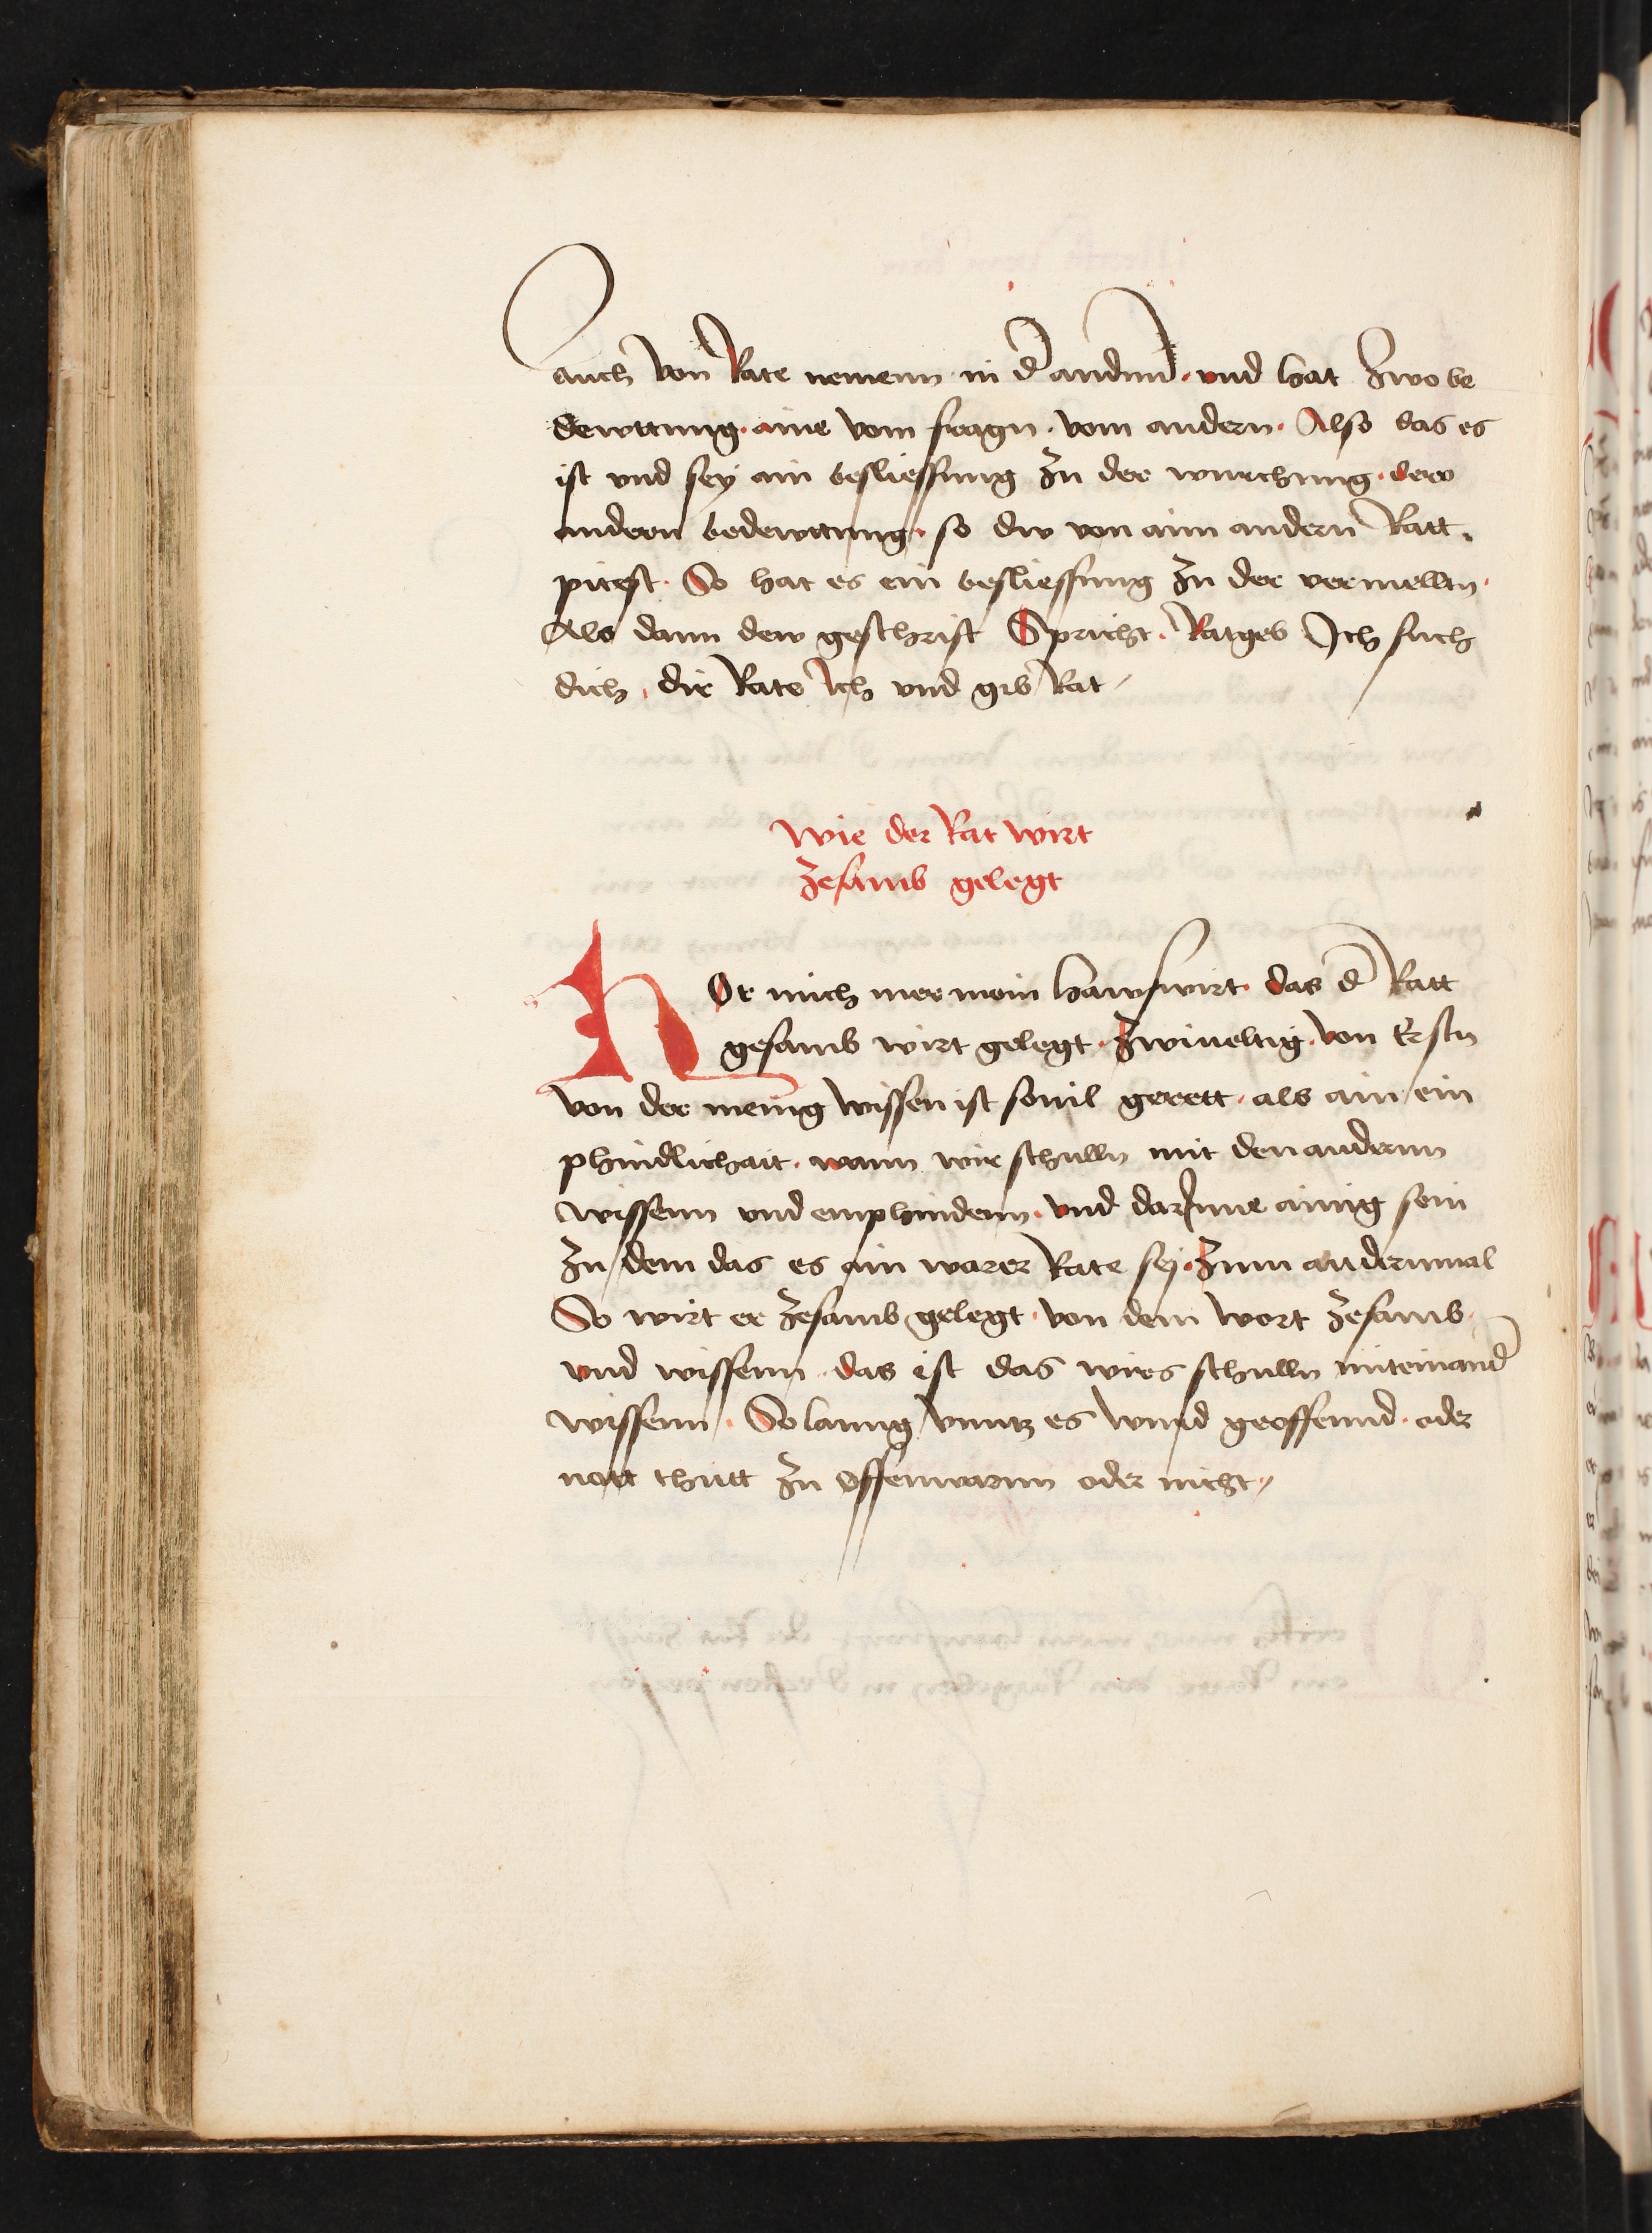 auch von Rate nemenn in d' andrnd · vnd hat zwo be
dewttung · aine vom fragn · vom andern · Also das es
ist vnd sey ain besliessung zu der wurchung · dew
andern bedewttung · so dw von aim andern Ratt ·
pitest · So hat es ein besliessung zu der vermelltn ·
Als dann dew geschrift Spricht · Ratgeb Ich such
dich · dir Rate Ich vnd gib Rat /
Wie der Rat wirt
zesamb gelegt
HOr mich mer mein hawswirt · das d' Ratt
gesamb wirt gelegt · zwiueltig · von Erstn
von der menig wissen ist souil gerett · als ain ein
phindlichait · wann wir schulln mit den andernn
wissenn vnd emphindenn · vnd darInne ainig sein
zu dem das es ain warer Rate sey · zum andernmal
So wirt er zesamb gelegt · von dem wort zesamb ·
vnd wissenn · das ist das wirs schulln miteinand'
wissenn · So lanng vnntz es wirud geoffennd · oder
nott thutt zu offenwarnn oder nicht /